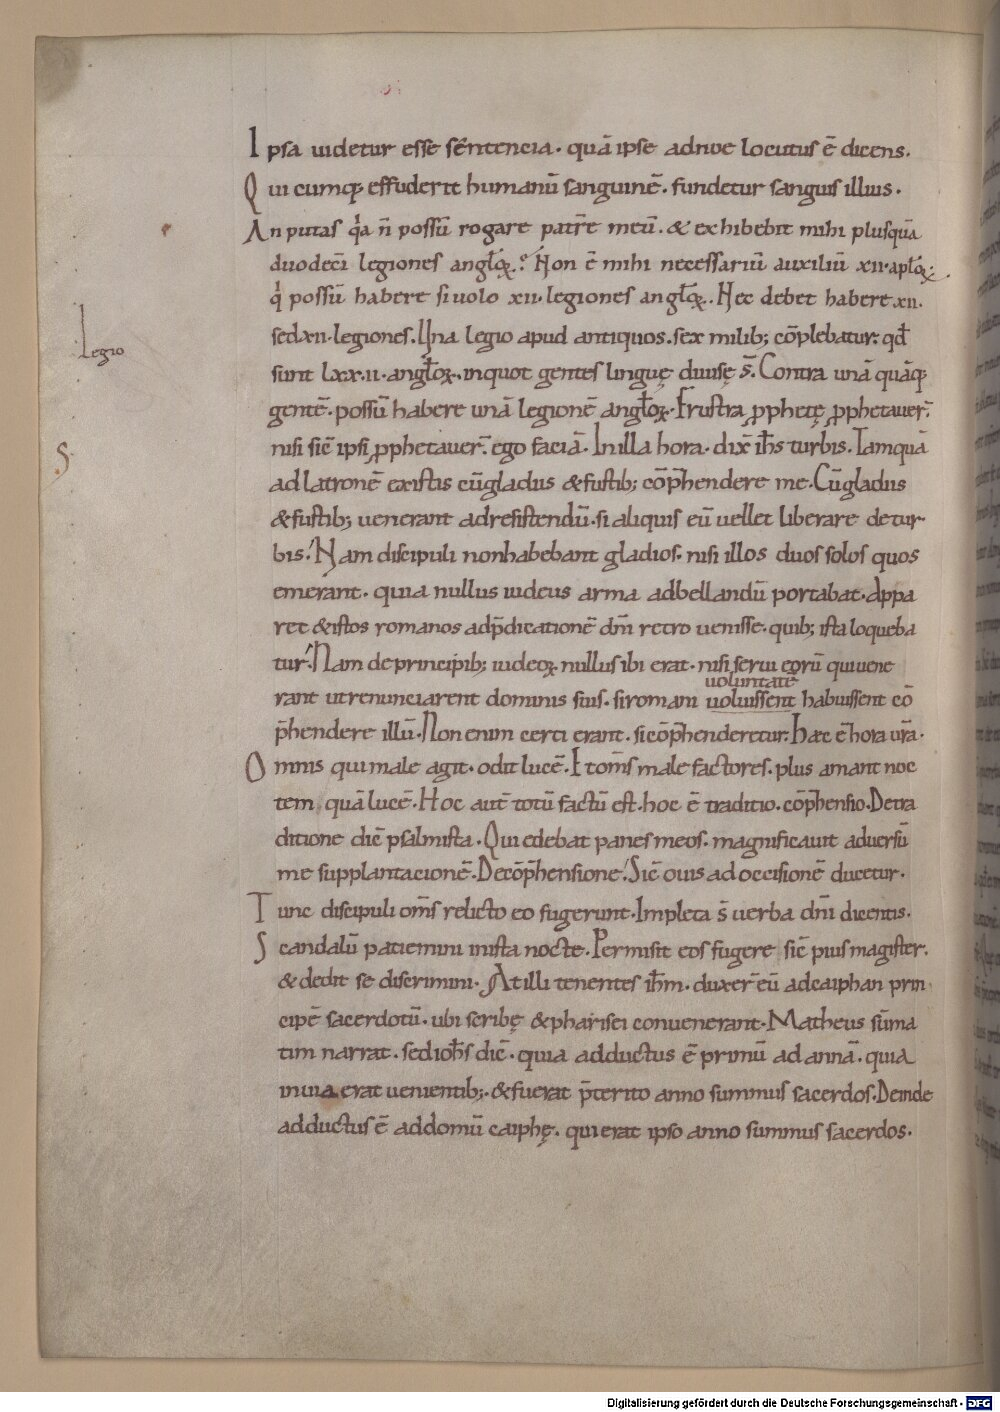 Ipsa uidetur esse sententia. quā ipse ad noe locutus ē dicens.
Qui cumq; effuderit humanū sanguinē. fundetur sanguis illius.
An putas qa n̄ possū rogare patrē meū. & exhibebit mihi plusquā
duodecī legiones anglꝝ. Non ē mihi necessariū auxiliū xii. aplꝝ.
q̇ possū habere si uolo xii. legiones anglꝝ. Nec debet habere xii.
sed xii. legiones. Una legio apud antiquos. sex milib; cōplebatur. qd̄
Legio
sunt lxx.ii. anglꝝ. in quot gentes linguę diuisę s̄. Contra unā quāq;
gentē. possū habere unā legionē anglꝝ. Frustra ꝓphetę ꝓphetauer̄.
nisi sic̄ ipsi ꝓphetauer̄. ego faciā. In illa hora. dix̄ ih̄s turbis. Tamquā
S
ad latronē existis cū gladiis & fustib; cōp̄hendere me. Cū gladiis
& fustib; uenerant ad resistendū. si aliquis eū uellet liberare de tur
bis. Nam discipuli non habebant gladios. nisi illos duos solos quos
emerant. quia nullus iudeus arma ad bellandū portabat. Appa
ret & istos romanos ad p̄dicationē dn̄i retro uenisse. quib; ista loqueba
tur. Nam de principib; iudeoꝝ. nullus ibi erat. nisi serui eorū qui uene
uoluntatē
rant ut renunciarent dominis suis. si romani uoluissent habuissent cō
p̄hendere illū. Non enim certi erant. si cōp̄henderetur. Haec ē hora ur̄a.
Omnis qui male agit. odit lucē. Et om̄s male factores. plus amant noc
tem quā lucē. Hoc autē totū factū est. hoc ē traditio. cōp̄hensio. De tra
ditione dic̄ psalmista. Qui edebat panes meos. magnificauit aduersū
me supplantacionē. De cōp̄hensione. Sic̄ ouis ad occisionē ducetur.
Tunc discipuli om̄s relicto eo fugerunt. Impleta s̄ uerba dn̄i dicentis.
Scandalū patiemini in ista nocte. Permisit eos fugere sic̄ pius magister.
& dedit se discrimini. At illi tenentes ih̄m. duxer̄ eū ad caiphan prin
cipē sacerdotū. ubi scribę & pharisei conuenerant. Matheus sūma
tim narrat. sed ioh̄s dic̄. quia adductus ē primū ad annā. quia
in uia erat uenientib;. & fuerat p̄terito anno summus sacerdos. Deinde
adductus ē ad domū caiphę. qui erat ipso anno summus sacerdos.
Digitalisierung gefördert durch die Deutsche Forschungsgemeinschaft - DFG